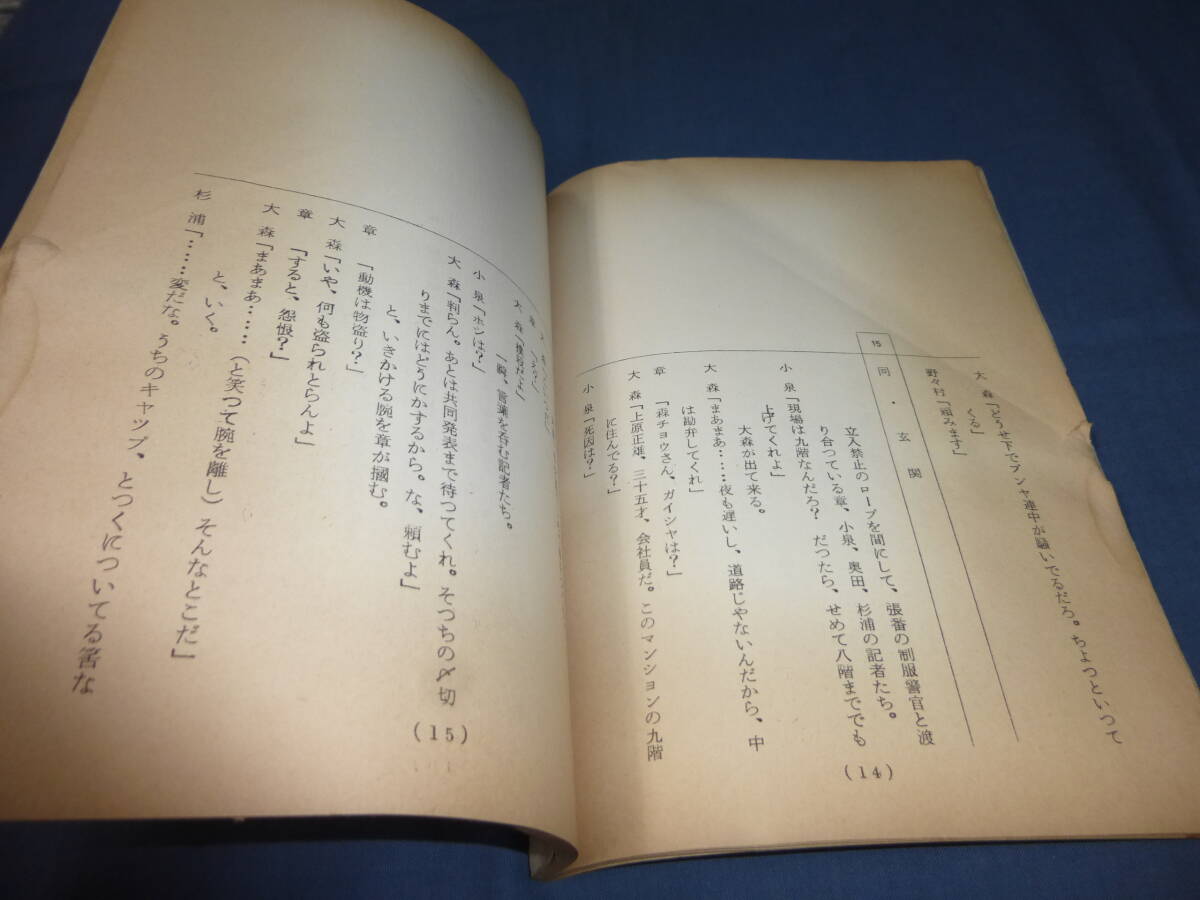 大森「どうせ下でブンヤ連中が騒いでるだろ。ちよつといって
くる」
野々村「頼みます」
15 同・玄関
立入禁止のロープを間にして、張番の制服警官と渡
り合つている章、小泉、奥田、杉浦の記者たち。
小泉「現場は九階なんだろ？ だつたら、せめて八階まででも
上げてくれよ」
大森が出て来る。
大森「まあまあ……夜も遅いし、道路じゃないんだから、中
は勘弁してくれ」
章「森チョウさん、ガイシャは？」
大森「上原正雄、三十五才、会社員だ。このマンションの九階
に住んでる？」
小泉「死因は？」
(14)
大森「撲殺だよ」
一瞬、言葉を呑む記者たち。
小泉「ホシは？」
大森「判らん。あとは共同発表まで待つてくれ。そつちの〆切
りまでにはどうにかするから。な、頼むよ」
と、いきかける腕を章が摑む。
章「動機は物盗り？」
大森「いや、何も盗られとらんよ」
章「すると、怨恨？」
大森「まあまあ……（と笑つて腕を離し）そんなとこだ」
と、いく。
杉浦「……変だな。うちのキャツプ、とつくについてる筈な
(15)